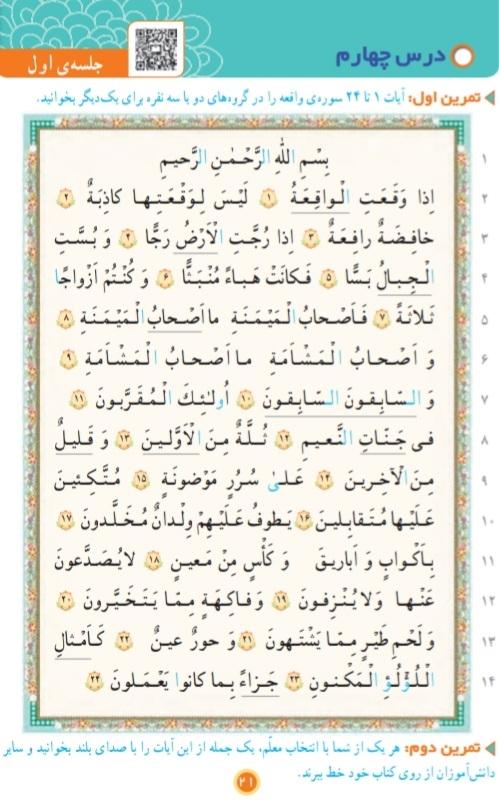 درس چهارم
جلسه‌ی اول
تمرین اول: آیات ۱ تا ۲۴ سوره‌ی واقعه را در گروه‌های دو یا سه نفره برای یک‌دیگر بخوانید.
۱ بِسْمِ اللهِ الرَّحْمٰنِ الرَّحیمِ
۲ اِذا وَقَعَتِ الْواقِعَةُ ۱ لَیْسَ لِوَقْعَتِها کاذِبَةٌ ۲
۳ خافِضَةٌ رافِعَةٌ ۳ اِذا رُجَّتِ الْاَرْضُ رَجًّا ۴ وَ بُسَّتِ
۴ الْجِبالُ بَسًّا ۵ فَکانَتْ هَباءً مُنْبَثًّا ۶ وَ کُنْتُمْ اَزْواجًا
۵ ثَلاثَةً ۷ فَاَصْحابُ الْمَیْمَنَةِ ما اَصْحابُ الْمَیْمَنَةِ ۸
۶ وَ اَصْحابُ الْمَشْاَمَةِ ما اَصْحابُ الْمَشْاَمَةِ ۹
۷ وَ السّابِقونَ السّابِقونَ ۱۰ اُولٰئِکَ الْمُقَرَّبونَ ۱۱
۸ فی جَنّاتِ النَّعیمِ ۱۲ ثُلَّةٌ مِنَ الْاَوَّلینَ ۱۳ وَ قَلیلٌ
۹ مِنَ الْآخِرینَ ۱۴ عَلیٰ سُرُرٍ مَوْضونَةٍ ۱۵ مُتَّکِئینَ
۱۰ عَلَیْها مُتَقابِلینَ ۱۶ یَطوفُ عَلَیْهِمْ وِلْدانٌ مُخَلَّدونَ ۱۷
۱۱ بِاَکْوابٍ وَ اَباریقَ وَ کَأْسٍ مِنْ مَعینٍ ۱۸ لایُصَدَّعونَ
۱۲ عَنْها وَ لایُنْزِفونَ ۱۹ وَ فاکِهَةٍ مِمّا یَتَخَیَّرونَ ۲۰
۱۳ وَ لَحْمِ طَیْرٍ مِمّا یَشْتَهونَ ۲۱ وَ حورٌ عینٌ ۲۲ کَاَمْثالِ
۱۴ اللُّؤْلُؤِ الْمَکْنونِ ۲۳ جَزاءً بِما کانوا یَعْمَلونَ ۲۴
تمرین دوم: هر یک از شما با انتخاب معلّم، یک جمله از این آیات را با صدای بلند بخوانید و سایر
دانش‌آموزان از روی کتاب خود خط ببرند.
۲۱